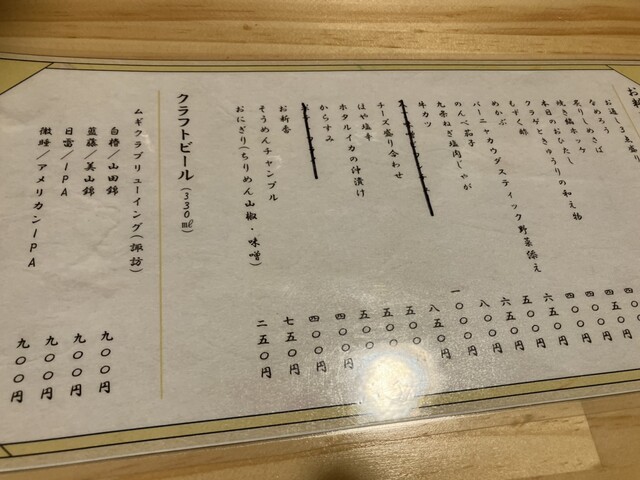 お料
お通し3点盛り
なめろう
炙りしめさば
焼き縞ホッケ
本日のおひたし
クラゲときゅうりの和え物
もずく酢
めかぶ
バーニャカウダスティック野菜添え
のんべ茄子
九条ねぎ塩肉じゃが
牛カツ
チーズ盛り合わせ
ほや塩辛
ホタルイカの沖漬け
からすみ
お新香
そうめんチャンプル
おにぎり(ちりめん山椒・味噌)
四五〇円
四〇〇円
四〇〇円
六五〇円
五〇〇円
六五〇円
八〇〇円
八五〇
五〇〇
五〇〇
五〇〇
四〇〇円
四〇〇円
七五〇円
二五〇円
クラフトビール(330㎖)
ムギクラブリューイング(諏訪)
白椿/山田錦 九〇〇円
藍藤/美山錦 九〇〇円
日雷/IPA 九〇〇円
微睡/アメリカンIPA 九〇〇円